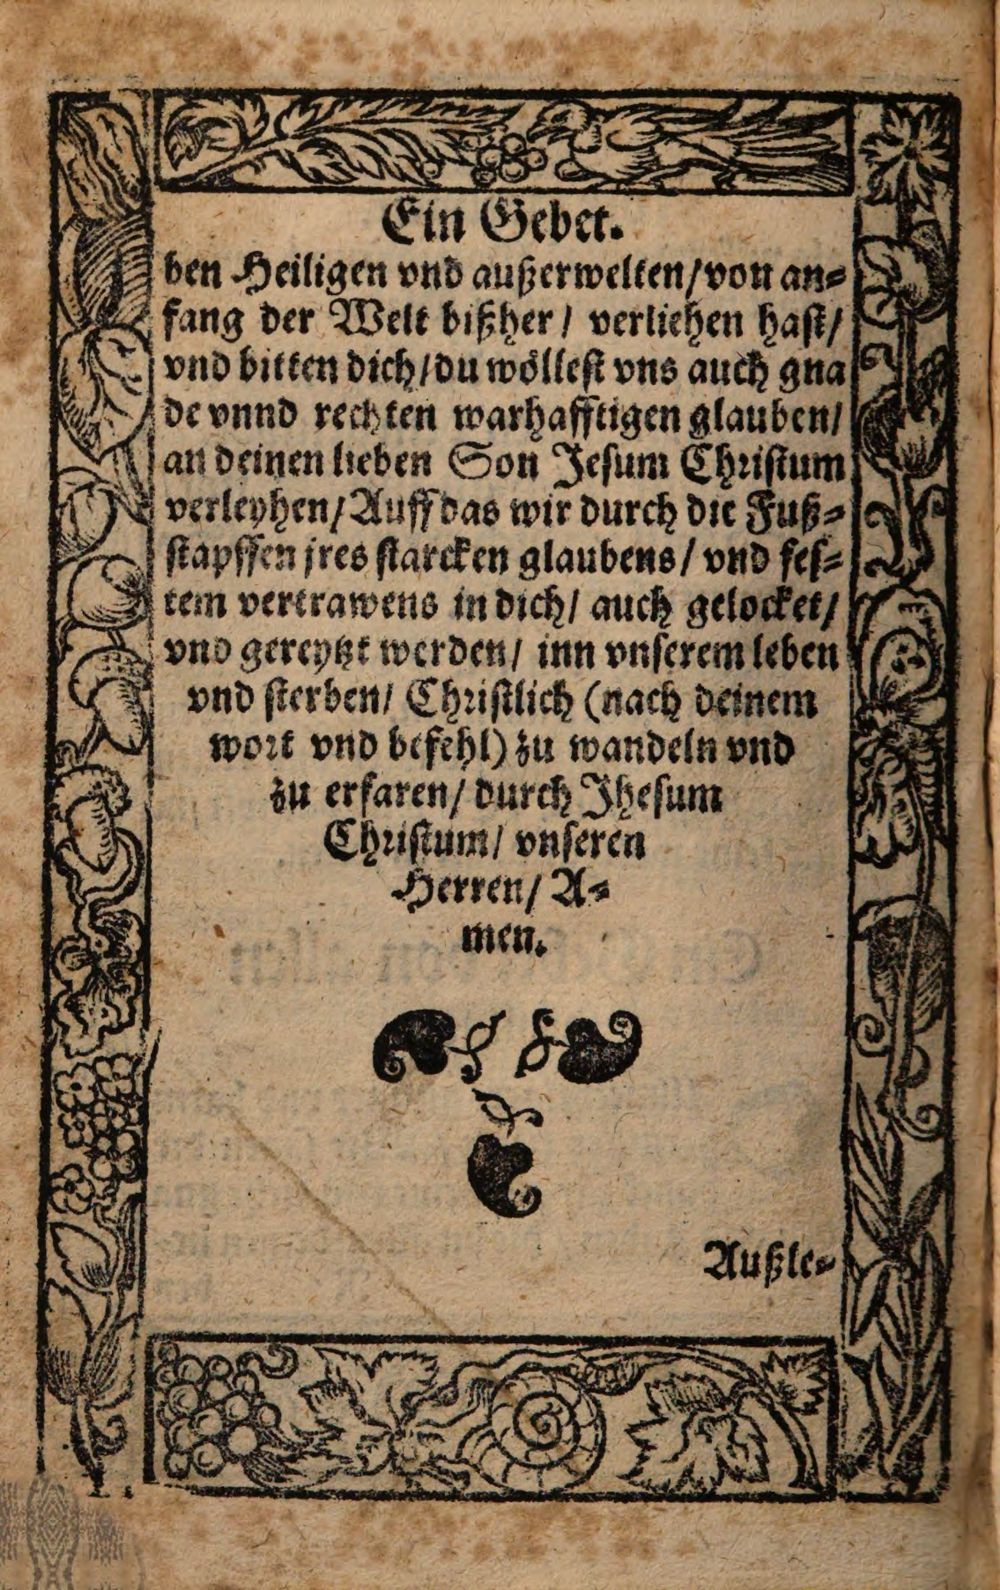 Ein Gebet.
ben Heiligen vnd außerwelten/von an⸗
fang der Welt bißher/ verliehen hast/
vnd bitten dich/du wöllest vns auch gna
de vnnd rechten warhafftigen glauben/
an deinen lieben Son Jesum Christum
verleyhen/Auff das wir durch die Fuß⸗
stapffen jres starcken glaubens/ vnd fes⸗
tem vertrawens in dich/ auch gelocket/
vnd gereytzt werden/ inn vnserem leben
vnd sterben/ Christlich (nach deinem
wort vnd befehl) zu wandeln vnd
zu erfaren/ durch Jhesum
Christum/ vnseren
Herren/ A⸗
men.
Außle⸗